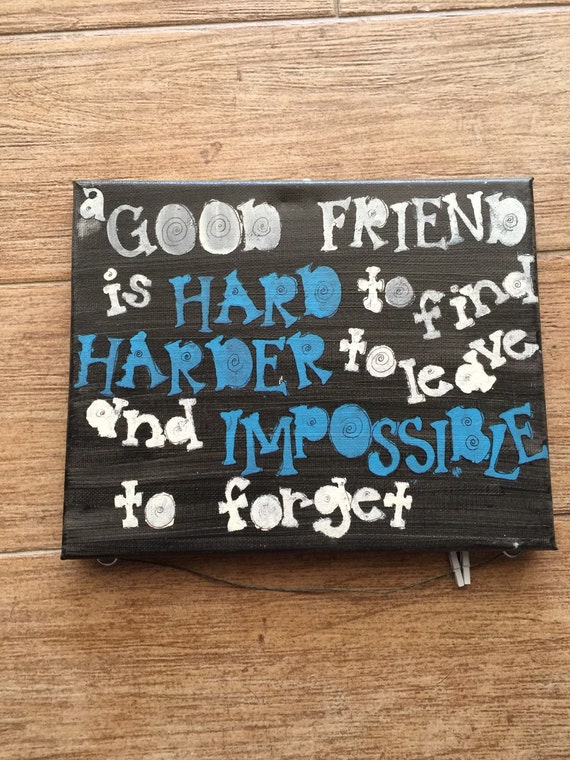 a GOOD FRIEND
is HARD to find
HARDER to leave
and IMPOSSIBLE
to forget